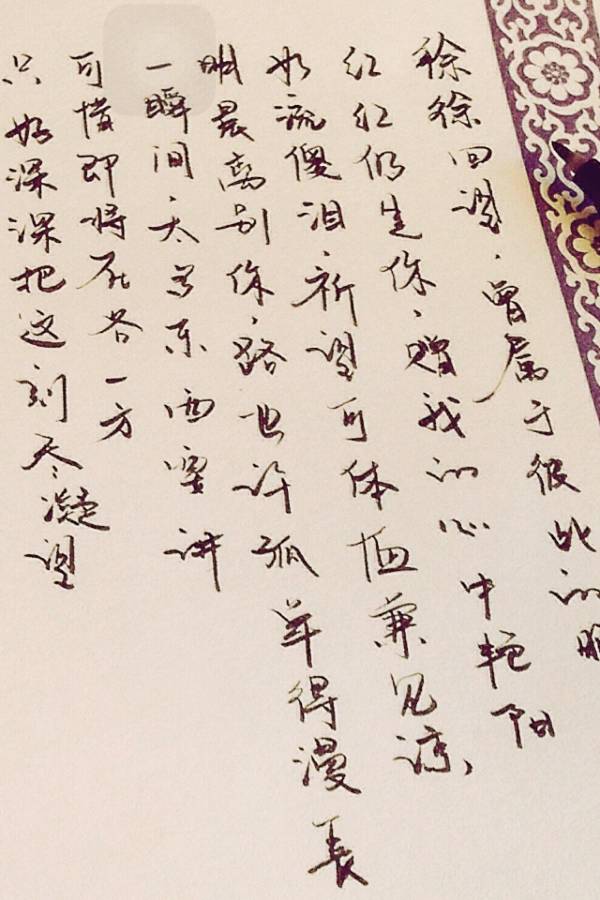 徐徐回望，曾属于彼此的
红红仍是你，赠我的心中艳阳
如流傻泪，祈望可体恤兼见谅，
明晨离别你，路也许孤单得漫长
一瞬间，太多东西要讲
可惜即将在各一方
只好深深把这刻尽凝望